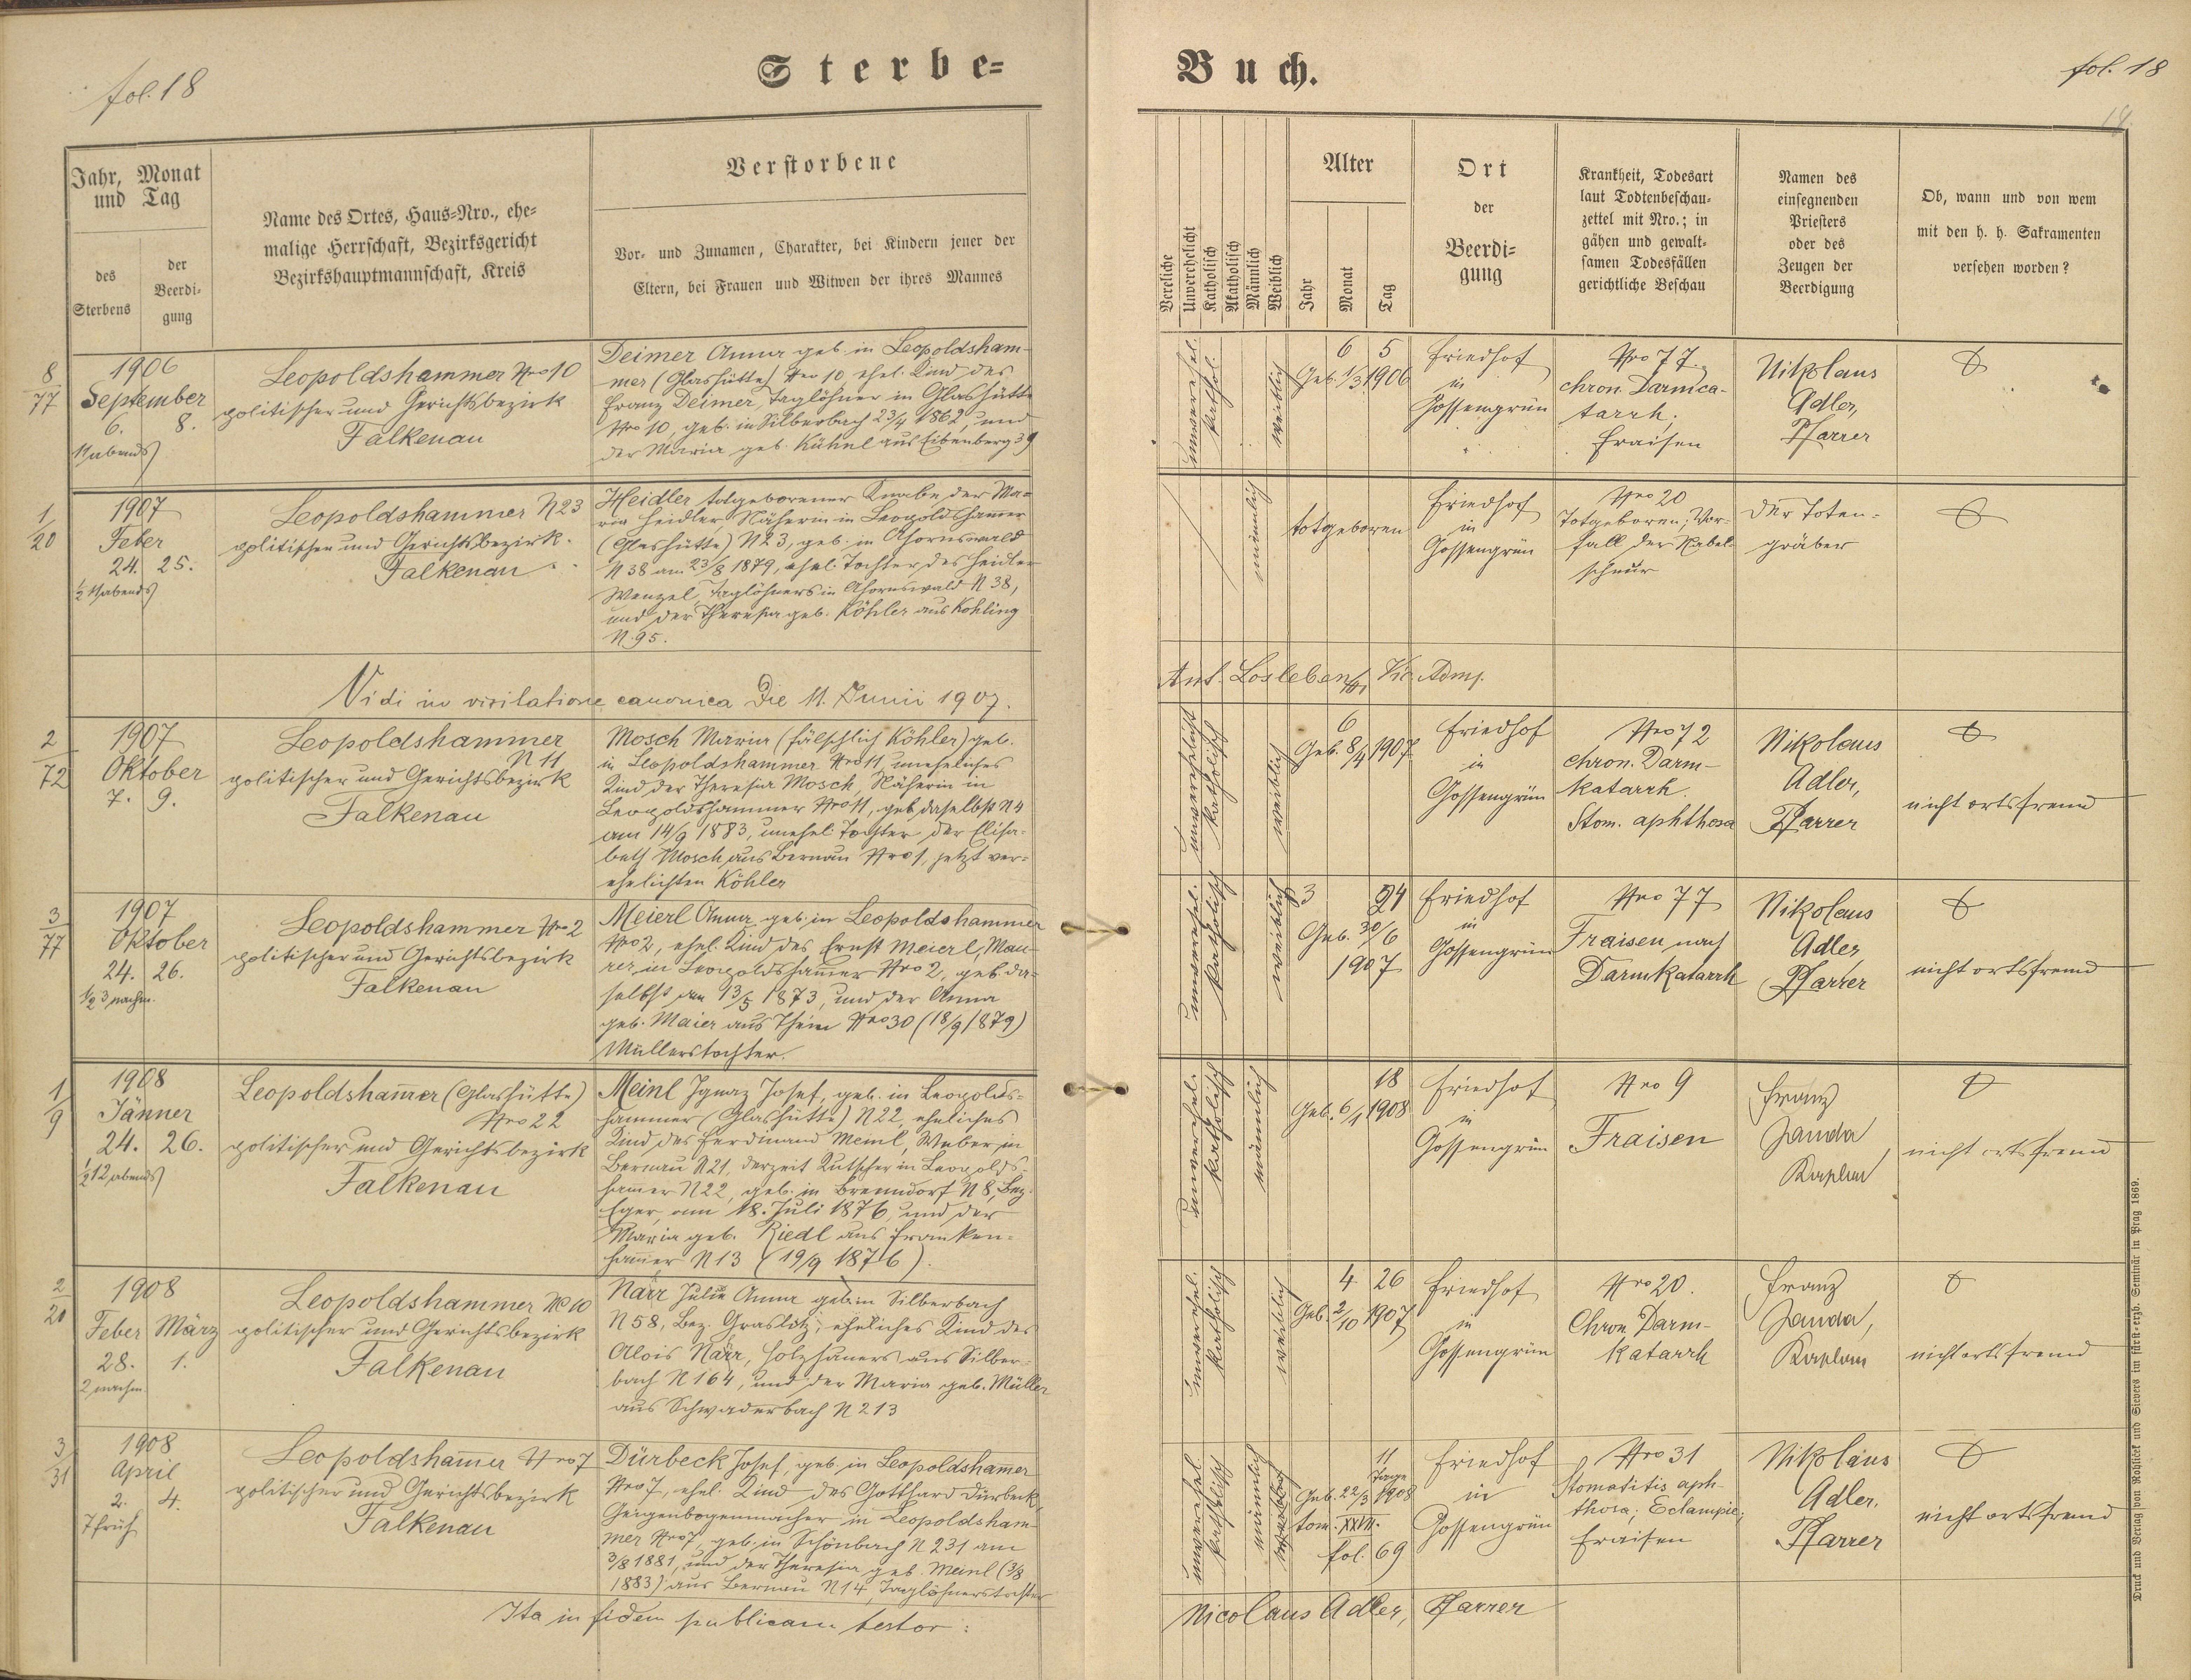 fol. 18
Sterbe-
Jahr, Monat
und Tag
des
Sterbens
der
Beerdi-
gung
Name des Ortes, Haus-Nro., ehe-
malige Herrschaft, Bezirksgericht
Bezirkshauptmannschaft, Kreis
Verstorbene
Vor- und Zunamen, Charakter, bei Kindern jener der
Eltern, bei Frauen und Witwen der ihres Mannes
8/77
1906
September
6. 8.
11 abends
Leopoldshammer Nro 10
politischer und Gerichtsbezirk
Falkenau
Deimer Anna geb. in Leopoldsham-
mer (Glashütte) Nro 10, ehel. Kind des
Franz Deimer, Taglöhner in Glashütte
Nro 10, geb. in Silberbach 23/4 1862, und
der Maria geb. Kühnl aus Eibenberg 39
1/20
1907
Feber
24. 25.
½ 11 abends
Leopoldshammer N 23
politischen und Gerichtsbezirk
Falkenau
Heidler totgeborener Knabe der Ma-
ria Heidler, Näherin in Leopoldshammer
(Glashütte) N 23, geb. in Ahornswald
N 38 am 23/8 1879, ehel. Tochter des Heidler
Wenzel, Taglöhners in Ahornswald N 38,
und der Theresia geb. Köhler aus Kohling
N. 95.
Vidi in visitatione canonica Die 11. Junii 1907.
2/72
1907
Oktober
7. 9.
Leopoldshammer
N 11
politischer und Gerichtsbezirk
Falkenau
Mosch Maria (fälschlich Köhler) geb.
in Leopoldshammer Nro 11, uneheliches
Kind der Theresia Mosch, Näherin in
Leopoldshammer Nro 11, geb. daselbst N 4
am 14/9 1883, unehel. Tochter der Elisa-
beth Mosch aus Bernau Nro 1, jetzt ver-
ehelichten Köhler
3/77
1907
Oktober
24. 26.
½ 3 nachm.
Leopoldshammer Nro 2
politischer und Gerichtsbezirk
Falkenau
Meierl Anna, geb. in Leopoldshammer
Nro 2, ehel. Kind des Ernst Meierl, Mau-
rer in Leopoldsham̅er Nro 2, geb. da-
selbst am 13/5 1873, und der Anna
geb. Maier aus Thein Nro 30 (18/9 1879)
Müllerstochter.
1/9
1908
Jänner
24. 26.
½ 12 abends
Leopoldsham̅er (Glashütte)
Nro 22
politischer und Gerichtsbezirk
Falkenau
Meinl Ignaz Josef, geb. in Leopolds-
hammer (Glashütte) N 22, eheliches
Kind des Ferdinand Meinl, Weber in
Bernau N 21, derzeit Kutscher in Leopolds-
ham̅er N 22, geb. in Brenndorf N 8, Bez.
Eger, am 18. Juli 1876, und der
Maria geb. Riedl aus Franken-
ham̅er N 13 (19/9 1876).
2/20
1908
Feber März
28. 1.
2 nachm.
Leopoldshammer No 10
politischer und Gerichtsbezirk
Falkenau
Närr Julie Anna geb. in Silberbach
N 58, Bez. Graslitz, eheliches Kind des
Alois Närr, Holzhauers aus Silber-
bach N 164, und der Maria geb. Müller
aus Schwaderbach N 213
3/31
1908
April
2. 4.
7 früh
Leopoldsham̅er Nro 7
politischer und Gerichtsbezirk
Falkenau
Dürbeck Josef, geb. in Leopoldsham̅er
Nro 7, ehel. Kind des Gotthard Dürbeck,
Geigenbogenmacher in Leopoldsham-
mer Nro 7, geb. in Schönbach N 231 am
3/8 1881, und der Theresia geb. Meinl (3/8
1883) aus Bernau N 14, Taglöhnerstochter
Ita in fidem publicam testor:
Buch.
fol. 18
18.
Vereliche
Unverehelicht
Katholisch
Akatholisch
Männlich
Weiblich
Alter
Jahr
Monat
Tag
Ort
der
Beerdi-
gung
Krankheit, Todesart
laut Todtenbeschau-
zettel mit Nro.; in
gähen und gewalt-
samen Todesfällen
gerichtliche Beschau
Namen des
einsegnenden
Priesters
oder des
Zeugen der
Beerdigung
Ob, wann und von wem
mit den h. h. Sakramenten
versehen worden?
unverehel.
kathol.
weiblich
6 5
Geb. 1/3 1906
Friedhof
in
Gossengrün
Nro 77
chron. Darmca-
tarrh,
Fraisen
Nikolaus
Adler,
Pfarrer
männlich
totgeboren
Friedhof
in
Gossengrün
Nro 20
Totgeboren, Vor-
fall der Nabel-
schnur
der Toten-
gräber
Ant. Losleben
Vic. Adms.
unverehelicht
katholisch
weiblich
6
Geb. 8/4 1907
Friedhof
in
Gossengrün
Nro 72
chron. Darm-
katarrh.
Stom. aphthosa
Nikolaus
Adler,
Pfarrer
nicht ortsfremd
unverehel.
katholisch
weiblich
3 24
Geb. 30/6
1907
Friedhof
in
Gossengrün
Nro 77
Fraisen nach
Darmkatarrh
Nikolaus
Adler,
Pfarrer
nicht ortsfremd
unverehel.
katholisch
männlich
18
Geb. 6/1 1908
Friedhof
in
Gossengrün
Nro 9
Fraisen
Franz
Janda,
Kaplan
nicht ortsfremd
unverehel.
katholisch
weiblich
4 26
Geb. 2/10 1907
Friedhof
in
Gossengrün
Nro 20.
Chron. Darm-
katarrh
Franz
Janda,
Kaplan
nicht ortsfremd
unverehel.
katholisch
männlich
11
Tage
Geb. 22/3 1908
tom. XXVII.
fol. 69
Friedhof
in
Gossengrün
Nro 31
Stomatitis aph-
thosa; Eclampie;
Fraisen
Nikolaus
Adler,
Pfarrer
nicht ortsfremd
Nicolaus Adler, Pfarrer
Druck und Verlag von Rohliček und Sievers im fürst-erzb. Seminär in Prag 1869.